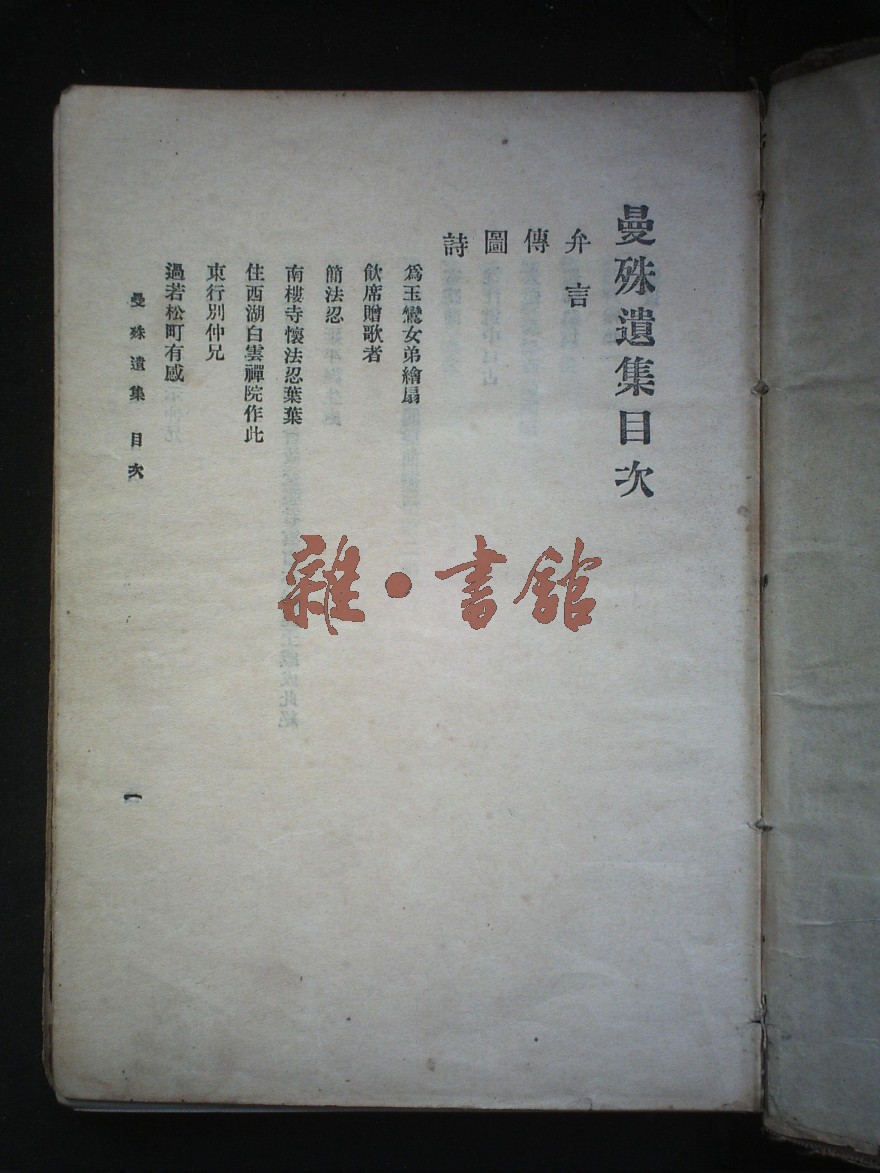 曼殊遺集目次
弁言
傳
圖
詩
爲玉鸞女弟繪扇
飲席贈歌者
簡法忍
南樓寺懷法忍葉葉
住西湖白雲禪院作此
東行別仲兄
過若松町有感
曼殊遺集 目次
一
雜·書館